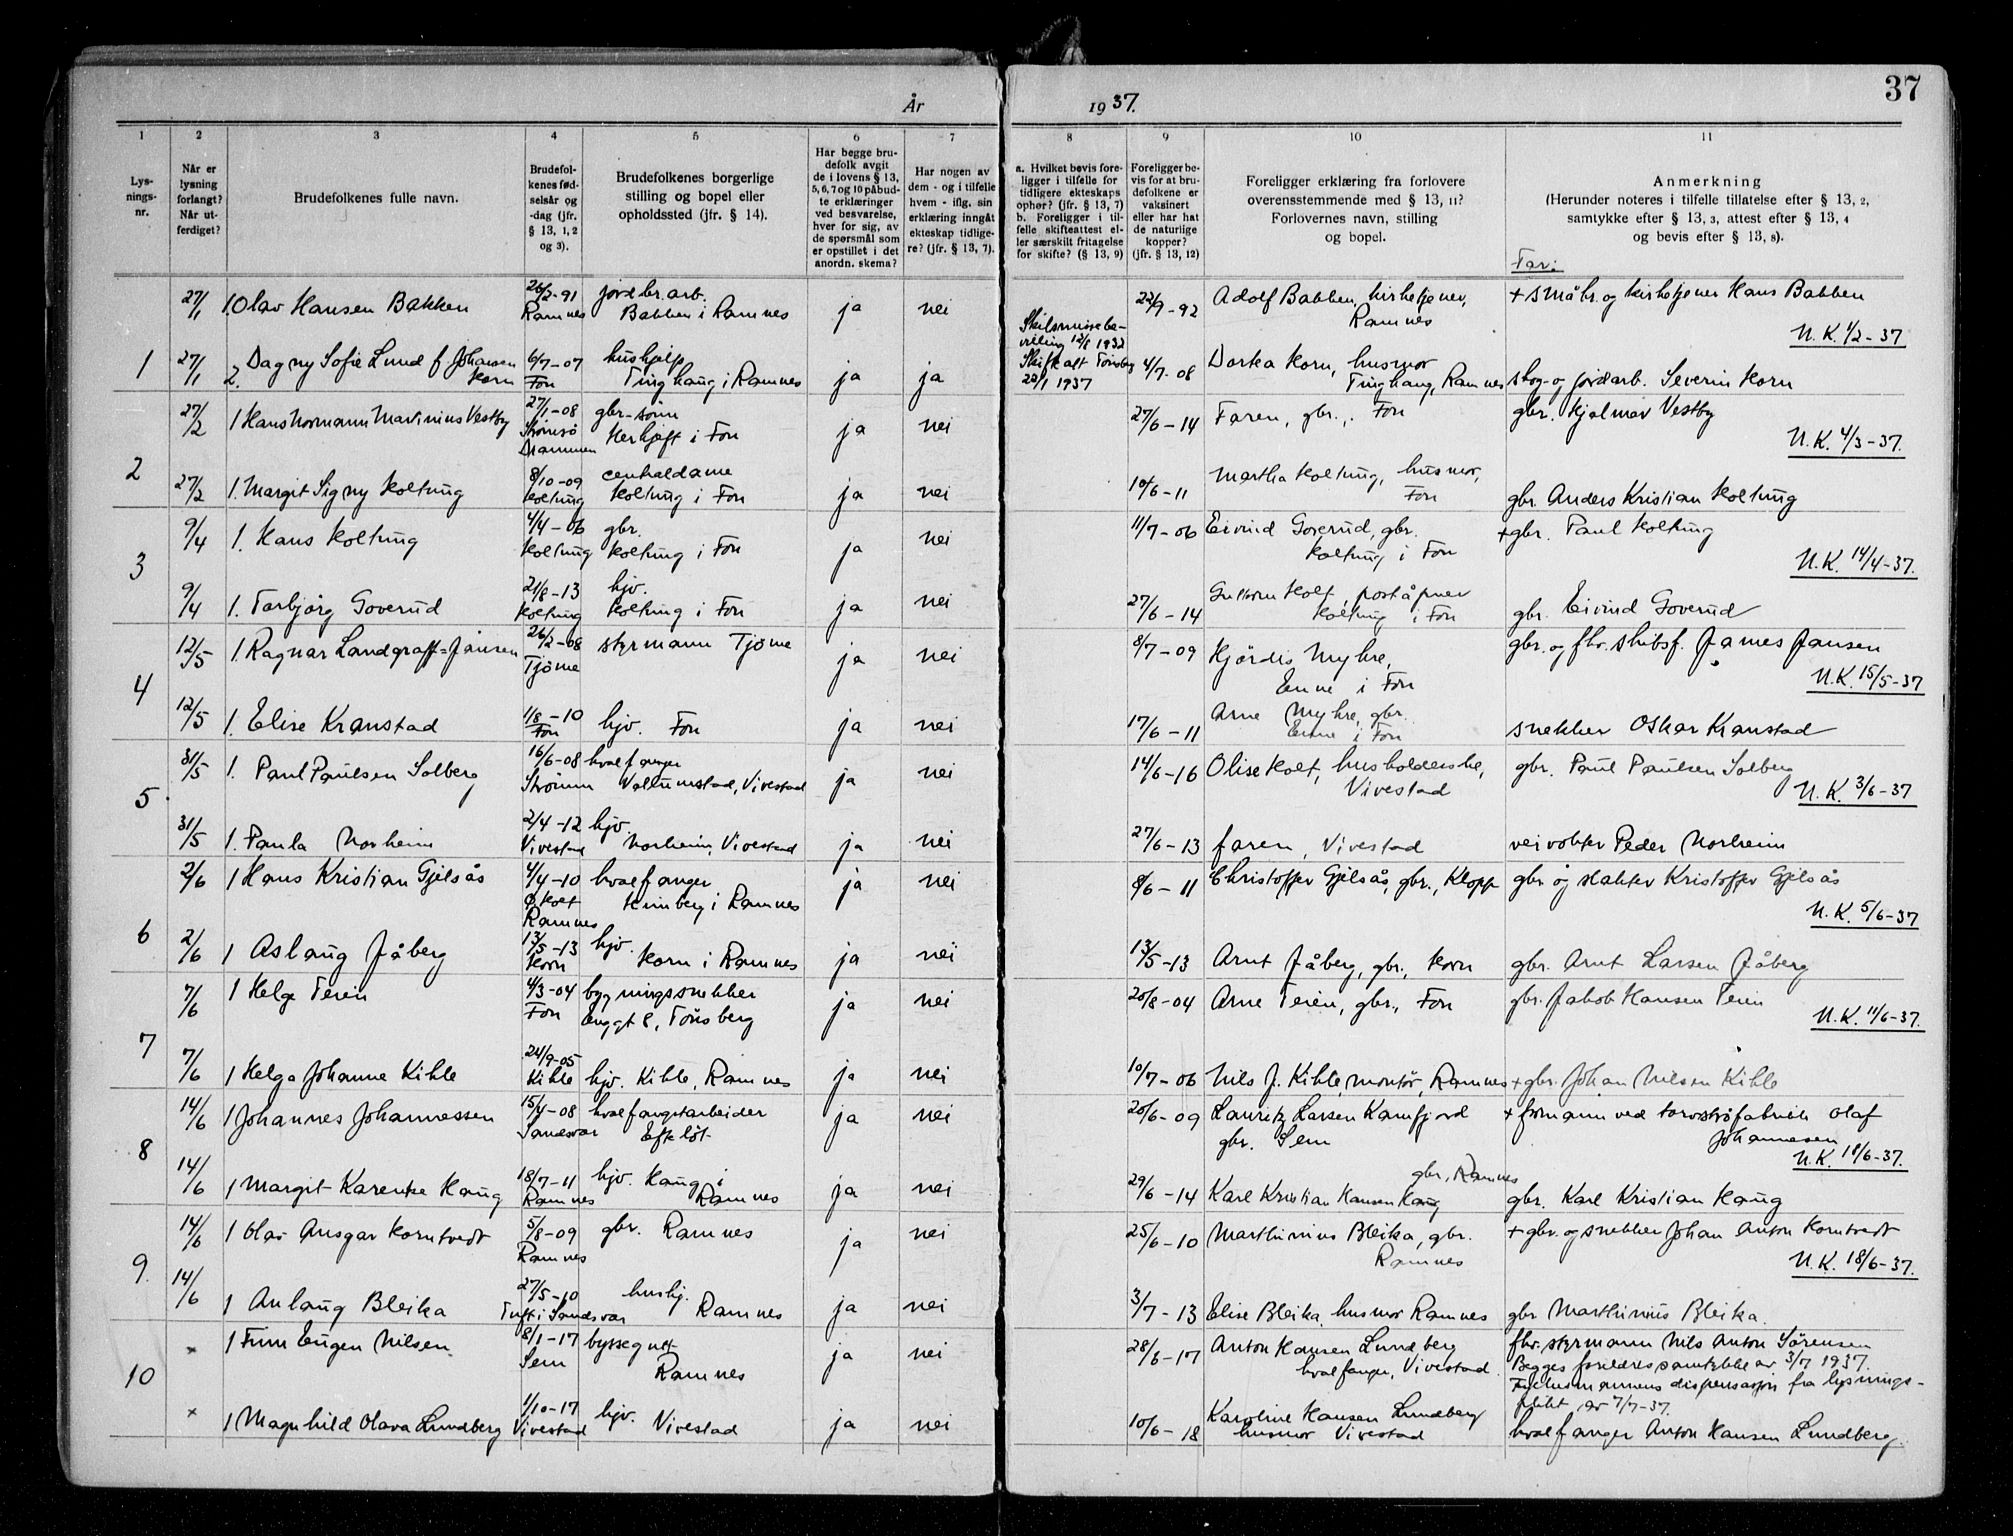 37
År 1937.
1 2 3 4 5 6 7 8 9 10 11
Lys-
nings-
nr.
Når er
lysning
forlangt?
Når ut-
ferdiget?
Brudefolkenes fulle navn.
Brudefol-
kenes fød-
selsår og
-dag (jfr.
§ 13, 1, 2
og 3).
Brudefolkenes borgerlige
stilling og bopel eller
opholdssted (jfr. § 14).
Har begge bru-
defolk avgit
de i lovens § 13,
5, 6, 7 og 10 påbud-
te erklæringer
ved besvarelse,
hver for sig, av
de spørsmål som
er opstillet i det
anordn. skema?
Har nogen av
dem - og i tilfelle
hvem - iflg. sin
erklæring inngått
ekteskap tidlige-
re? (jfr. § 13, 7).
a. Hvilket bevis fore-
ligger i tilfelle for
tidligere ekteskaps
ophør? (jfr. § 13, 7)
b. Foreligger i til-
felle skifteattest el-
ler særskilt fritagelse
for skifte? (§ 13, 9)
Foreligger be-
vis for at bru-
defolkene er
vaksinert
eller har hat
de naturlige
kopper?
(jfr. § 13, 12)
Foreligger erklæring fra forlovere
overensstemmende med § 13, 11?
Forlovernes navn, stilling
og bopel.
Anmerkning
(Herunder noteres i tilfelle tillatelse efter § 13, 2,
samtykke efter § 13, 3, attest efter § 13, 4
og bevis efter § 13, 8).
Far:
27/1 1. Olav Hansen Bakken 26/2-91 Ramnes jordbr.arb. Bakken i Ramnes ja nei 22/9-92 Adolf Bakken, kirketjener, Ramnes + småbr. og kirketjener Hans Bakken
N.K. 1/2-37
1 27/1 2. Dagny Sofie Lund f. Johansen Korn 6/7-07 Fon hushjelp Tinghaug i Ramnes ja ja Skilsmissebevilling 12/8 1932 Skifteatt Tønsberg 22/1 1937 4/7-08 Dorthea Korn, husmor Tinghaug, Ramnes skog- og jordarb. Severin Korn
27/2 1 Hans Normann Martinius Vestby 27/1-08 Strømsø Drammen gbr-sønn Herkjøft i Fon ja nei 27/6-14 Faren, gbr., Fon gbr. Hjalmar Vestby
N.K. 4/3-37.
2 27/2 1. Margit Signy Holtung 8/10-09 Holtung centraldame Holtung i Fon ja nei 10/6-11 Martha Holtung, husmor, Fon gbr. Anders Kristian Holtung
9/4 1. Hans Holtung 4/4-06 Holtung gbr. Holtung i Fon ja nei 11/7-06 Eivind Goverud, gbr. Holtung i Fon + gbr. Paul Holtung
N.K. 14/4-37.
3 9/4 1. Torbjørg Goverud 21/8-13 Holtung hjv. Holtung i Fon ja nei 27/6-14 Holt, poståpner Holtung i Fon gbr. Eivind Goverud
12/5 1. Ragnar Landgraff-Jansen 26/2-08 Tjøme styrmann Tjøme ja nei 8/7-09 Hjørdis Myhre, Enne i Fon gbr. og fhv. skibsf. James Jansen
N.K. 15/5-37
4 12/5 1. Elise Kranstad 1/8-10 Fon hjv. Fon ja nei 17/6-11 Arne Myhre, gbr. Enne i Fon snekker Oskar Kranstad
31/5 1. Paul Paulsen Solberg 16/6-08 Strømm hvalfanger Vallumstad, Vivestad ja nei 14/6-16 Olise Holt, husholderske, Vivestad gbr. Paul Paulsen Solberg
N.K. 3/6-37
5 31/5 1. Paula Norheim 2/4-12 Vivestad hjv. Norheim, Vivestad ja nei 27/6-13 faren, Vivestad veivokter Peder Norheim
2/6 1 Hans Kristian Gjelsås 4/4-10 Ø Holt Ramnes hvalfanger Kimberg i Ramnes ja nei 8/6-11 Christoffer Gjelsås, gbr., Klopp gbr og slakter Kristoffer Gjelsås
N.K. 5/6-37
6 2/6 1 Aslaug Jåberg 13/5-13 Korn hjv. Korn i Ramnes ja nei 13/5-13 Arnt Jåberg, gbr., Korn gbr. Arnt Larsen Jåberg
7/6 1 Helge Teien 4/3-04 Fon bygningssnekker Enggt 8, Tønsberg ja nei 20/8-04 Arne Teien, gbr., Fon gbr. Jakob Hansen Teien
N.K. 11/6-37.
7 7/6 1 Helga Johanne Kihle 24/9-05 Kihle hjv. Kihle, Ramnes ja nei 10/7-06 Nils J. Kihle, montør, Ramnes + gbr. Johan Nilsen Kihle
14/6 1 Johannes Johannessen 15/4-08 Sandsvær hvalfangstarbeider Efteløt ja nei 20/6-09 Lauritz Larsen Kamfjord gbr. Sem + formann ved torvstrøfabrikk Olaf Johannesen
N.K. 18/6-37.
8 14/6 1 Margit Karenke Haug 18/7-11 Ramnes hjv. Haug i Ramnes ja nei 29/6-14 Karl Kristian Hansen Haug gbr, Ramnes gbr. Karl Kristian Haug
14/6 1 Olav Ansgar Korntvedt 5/8-09 Ramnes gbr. Ramnes ja nei 25/6-10 Marthinius Bleika, gbr. Ramnes + gbr. og snekker Johan Anton Korntvedt
N.K. 18/6-37.
9. 14/6 1 Anlaug Bleika 27/5-10 Tuft i Sandsvær hushj. Ramnes ja nei 3/7-13 Elise Bleika, husmor Ramnes gbr Marthinius Bleika.
× 1 Finn Eugen Nilsen 8/1-17 Sem byssegutt Ramnes ja nei 28/6-17 Anton Hansen Lundberg hvalfanger, Vivestad fhv. styrmann Nils Anton Sørensen
Begges foreldres samtykke av 3/7 1937.
Fylkesmannens dispensasjon fra lysnings-
plikt, av 7/7-37.
10 × 1 Magnhild Olava Lundberg 1/10-17 Vivestad hjv. Vivestad ja nei 10/6-18 Karoline Hansen Lundberg husmor Vivestad hvalfanger Anton Hansen Lundberg.